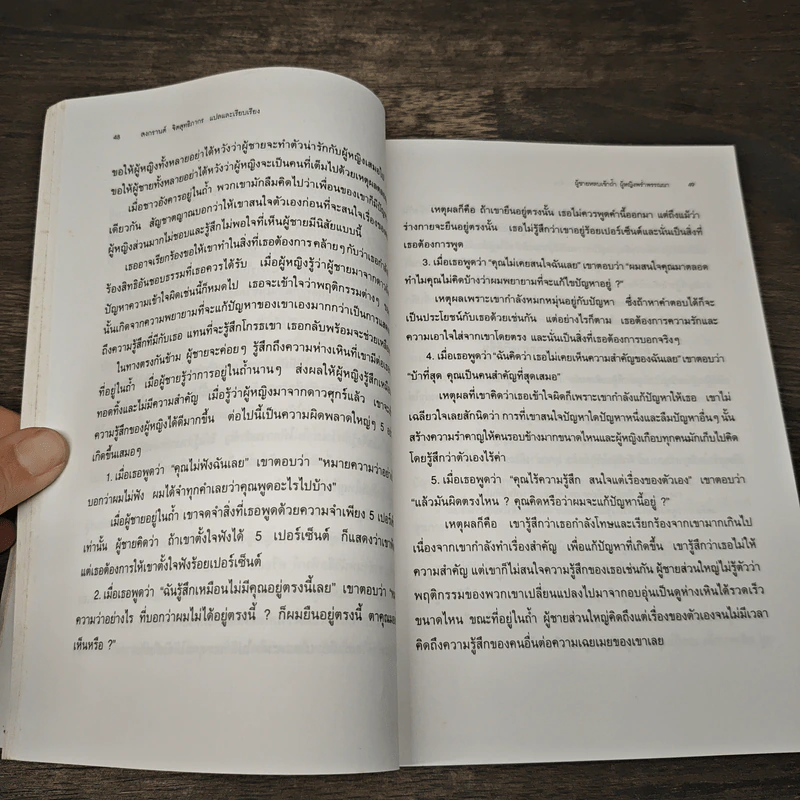 48 สงกรานต์ จิตสุทธิภากร แปลและเรียบเรียง
ขอให้ผู้หญิงทั้งหลายอย่าได้หวังว่าผู้ชายจะทำตัวน่ารักกับผู้หญิงเสมอไป
ขอให้ผู้ชายทั้งหลายอย่าได้หวังว่าผู้หญิงจะเป็นคนที่เต็มไปด้วยเหตุผลตลอด
เมื่อชาวอังคารอยู่ในถ้ำ พวกเขามักลืมคิดไปว่าเพื่อนของเขาก็มีปัญหา
เดียวกัน สัญชาตญาณบอกว่าให้เขาสนใจตัวเองก่อนที่จะสนใจเรื่องของ
ผู้หญิงส่วนมากไม่ชอบและรู้สึกไม่พอใจที่เห็นผู้ชายมีนิสัยแบบนี้
เธออาจเรียกร้องขอให้เขาทำในสิ่งที่เธอต้องการ คล้ายๆ กับว่าเธอกำลัง
ร้องสิทธิอันชอบธรรมที่เธอควรได้รับ เมื่อผู้หญิงรู้ว่าผู้ชายมาจากดาว
ปัญหาความเข้าใจผิดเช่นนี้ก็หมดไป เธอจะเข้าใจว่าพฤติกรรมต่างๆ
นั้นเกิดจากความพยายามที่จะแก้ปัญหาของเขาเองมากกว่าเป็นการแสดง
ถึงความรู้สึกที่มีกับเธอ แทนที่จะรู้สึกโกรธเขา เธอกลับพร้อมจะช่วยเหลือ
ในทางตรงกันข้าม ผู้ชายจะค่อยๆ รู้สึกถึงความห่างเหินที่เขามีต่อ
ที่อยู่ในถ้ำ เมื่อผู้ชายรู้ว่าการอยู่ในถ้ำนานๆ ส่งผลให้ผู้หญิงรู้สึก
ทอดทิ้งและไม่มีความสำคัญ เมื่อรู้ว่าผู้หญิงมาจากดาวศุกร์แล้ว เขาจะ
ความรู้สึกของผู้หญิงได้ดีมากขึ้น ต่อไปนี้เป็นความผิดพลาดใหญ่ๆ 5
เกิดขึ้นเสมอๆ
1. เมื่อเธอพูดว่า “คุณไม่ฟังฉันเลย” เขาตอบว่า “หมายความว่าอย่าง
บอกว่าผมไม่ฟัง ผมได้จำทุกคำเลยว่าคุณพูดอะไรไปบ้าง”
เมื่อผู้ชายอยู่ในถ้ำ เขาจดจำสิ่งที่เธอพูดด้วยความจำเพียง 5 เปอร์
เท่านั้น ผู้ชายคิดว่า ถ้าเขาตั้งใจฟังได้ 5 เปอร์เซ็นต์ ก็แสดงว่าเขา
แต่เธอต้องการให้เขาตั้งใจฟังร้อยเปอร์เซ็นต์
2. เมื่อเธอพูดว่า “ฉันรู้สึกเหมือนไม่มีคุณอยู่ตรงนี้เลย” เขาตอบว่า
ความว่าอย่างไร ที่บอกว่าผมไม่ได้อยู่ตรงนี้ ? ก็ผมยืนอยู่ตรงนี้ ตาคุณ
เห็นหรือ ?”
ผู้ชายหลบเข้าถ้ำ ผู้หญิงพร่ำพรรณนา 49
เหตุผลก็คือ ถ้าเขายืนอยู่ตรงนั้น เธอไม่ควรพูดคำนี้ออกมา แต่ถึงแม้ว่า
ร่างกายจะยืนอยู่ตรงนั้น เธอไม่รู้สึกว่าเขาอยู่ร้อยเปอร์เซ็นต์และนั่นเป็นสิ่งที่
เธอต้องการพูด
3. เมื่อเธอพูดว่า “คุณไม่เคยสนใจฉันเลย” เขาตอบว่า “ผมสนใจคุณมาตลอด
ทำไมคุณไม่คิดบ้างว่าผมพยายามที่จะแก้ไขปัญหาอยู่ ?”
เหตุผลเพราะเขากำลังหมกหมุ่นอยู่กับปัญหา ซึ่งถ้าหาคำตอบได้ก็จะ
เป็นประโยชน์กับเธอด้วยเช่นกัน แต่อย่างไรก็ตาม เธอต้องการความรักและ
ความเอาใจใส่จากเขาโดยตรง และนั่นเป็นสิ่งที่เธอต้องการบอกจริงๆ
4. เมื่อเธอพูดว่า “ฉันคิดว่า เธอไม่เคยเห็นความสำคัญของฉันเลย” เขาตอบว่า
“บ้าที่สุด คุณเป็นคนสำคัญที่สุดเสมอ”
เหตุผลที่เขาคิดว่าเธอเข้าใจผิดก็เพราะเขากำลังแก้ปัญหาให้เธอ เขาไม่
เฉลียวใจเลยสักนิดว่า การที่เขาสนใจปัญหาใดปัญหาหนึ่งและลืมปัญหาอื่นๆ นั้น
สร้างความรำคาญให้คนรอบข้างมากขนาดไหนและผู้หญิงเกือบทุกคนมักเก็บไปคิด
โดยรู้สึกว่าตัวเองไร้ค่า
5. เมื่อเธอพูดว่า “คุณไร้ความรู้สึก สนใจแต่เรื่องของตัวเอง” เขาตอบว่า
“แล้วมันผิดตรงไหน ? คุณคิดหรือว่าผมจะแก้ปัญหานี้อยู่ ?”
เหตุผลก็คือ เขารู้สึกว่าเธอกำลังโทษและเรียกร้องจากเขามากเกินไป
เนื่องจากเขากำลังทำเรื่องสำคัญ เพื่อแก้ปัญหาที่เกิดขึ้น เขารู้สึกว่าเธอไม่ให้
ความสำคัญ แต่เขาก็ไม่สนใจความรู้สึกของเธอเช่นกัน ผู้ชายส่วนใหญ่ไม่รู้ตัวว่า
พฤติกรรมของพวกเขาเปลี่ยนแปลงไปมาจากอบอุ่นเป็นดูห่างเหินได้รวดเร็ว
ขนาดไหน ขณะที่อยู่ในถ้ำ ผู้ชายส่วนใหญ่คิดถึงแต่เรื่องของตัวเองจนไม่มีเวลา
คิดถึงความรู้สึกของคนอื่นต่อความเฉยเมยของเขาเลย